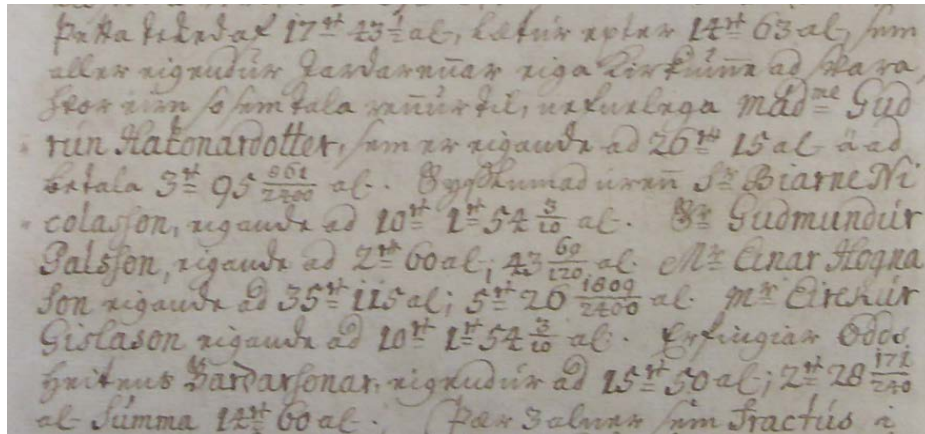 Þetta teked af 17rt 43½ al, lætur epter 14rt 63 al, sem
aller eigendur Jardarennar eiga Kirkiunne ad svara,
hvor einn so sem tala rennur til, nefnelega Madme Gud
rún Hákonardotter, sem er eigande ad 26rt 15 al á ad
betala 3rt 95 861/2400 al. Sysslumadurenn Sr Biarne Ni
colasson, eigande ad 10rt 1rt 54 3/10 al. Sr Gudmundur
Palsson, eigande ad 2rt 60 al; 43 69/120 al. Mr Einar Hogna
son eigande ad 35rt 115 al; 5rt 26 1809/2400 al. Mr Eirekur
Gislason eigande ad 10rt 1rt 54 3/10 al. Erfingiar Odds
heitens Bardarsonar, eigendur ad 15rt 50 al; 2rt 28 171/240
al Summa 14rt 60 al. Þær 3 alner sem fractus i